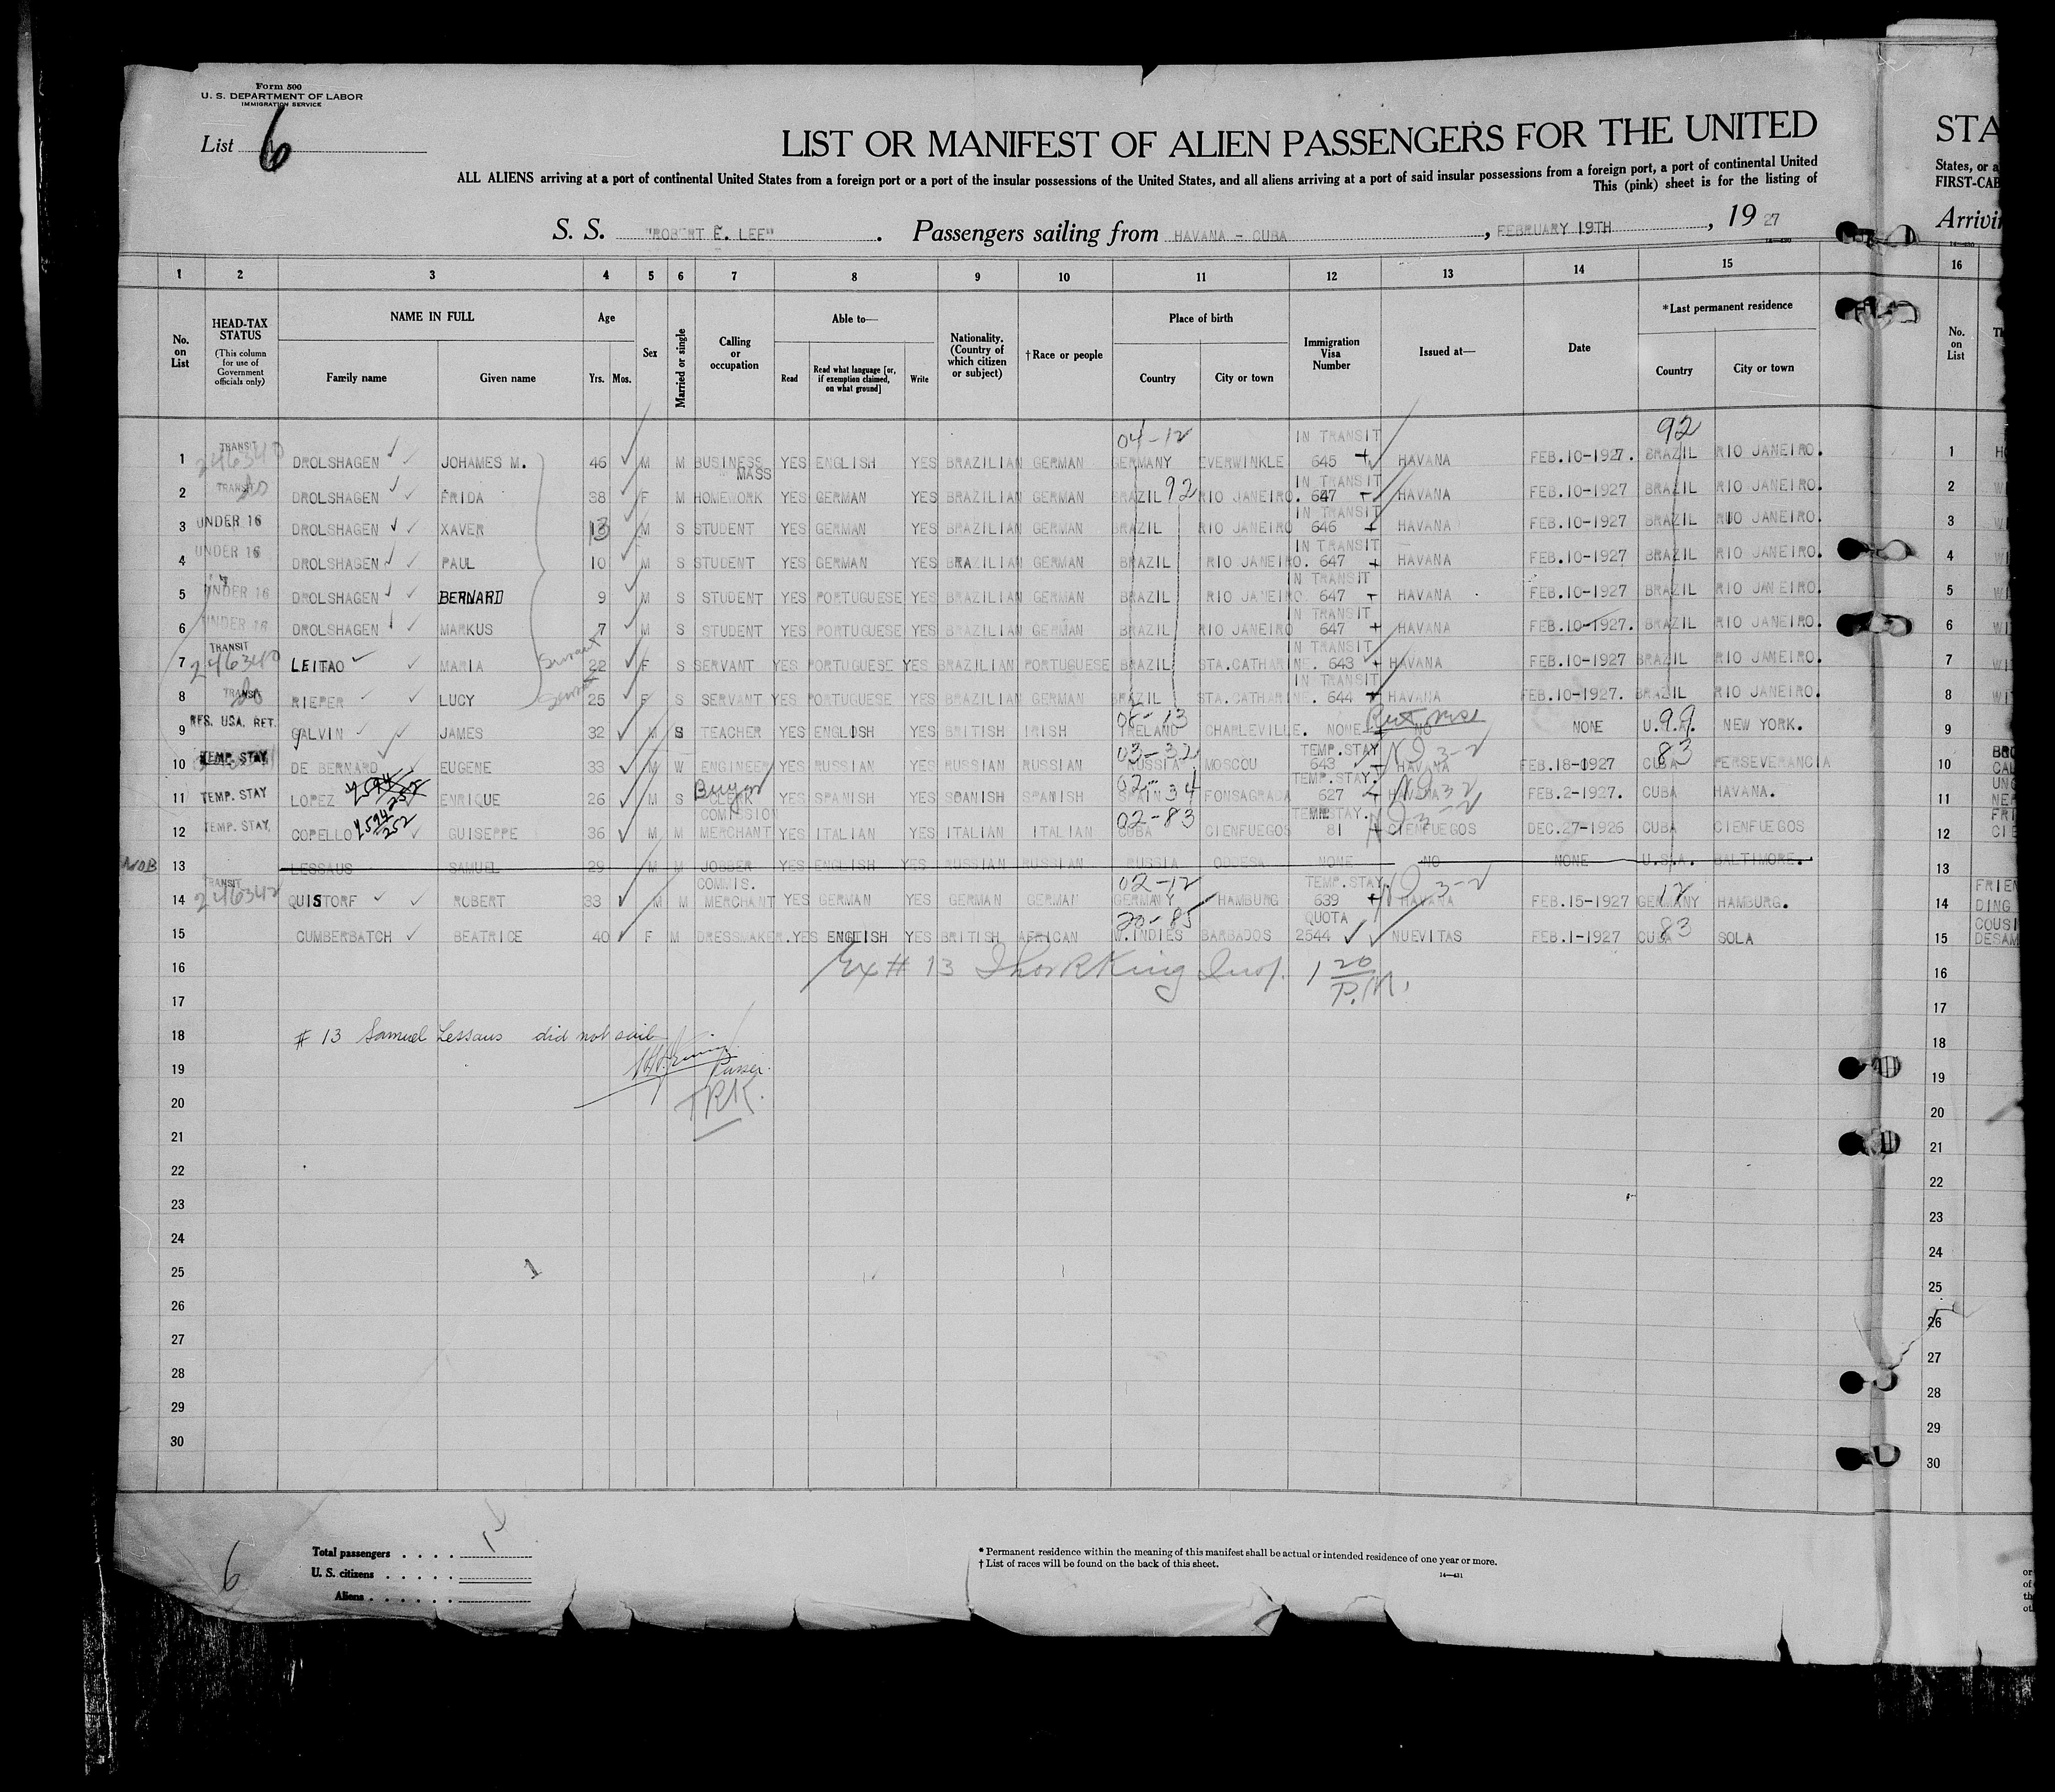 Form 500
U. S. DEPARTMENT OF LABOR
IMMIGRATION SERVICE
List 6
LIST OR MANIFEST OF ALIEN PASSENGERS FOR THE UNITED
STA
ALL ALIENS arriving at a port of continental United States from a foreign port or a port of the insular possessions of the United States, and all aliens arriving at a port of said insular possessions from a foreign port, a port of continental United
States, or a
This (pink) sheet is for the listing of
FIRST-CAB
S. S. "ROBERT E. LEE". Passengers sailing from HAVANA - CUBA, FEBRUARY 19TH, 19 27
Arrivin
1 2 3 4 5 6 7 8 9 10 11 12 13 14 15 16
No. on List
HEAD-TAX STATUS
(This column for use of Government officials only)
NAME IN FULL
Family name Given name
Age
Yrs. Mos.
Sex
Married or single
Calling or occupation
Able to—
Read
Read what language [or, if exemption claimed, on what ground]
Write
Nationality. (Country of which citizen or subject)
†Race or people
Place of birth
Country City or town
Immigration Visa Number
Issued at—
Date
*Last permanent residence
Country City or town
No. on List
04-12 IN TRANSIT 92
1 TRANSIT 246340 DROLSHAGEN JOHAMES M. 46 M M BUSINESS YES ENGLISH YES BRAZILIAN GERMAN GERMANY EVERWINKLE 645 HAVANA FEB.10-1927. BRAZIL RIO JANEIRO. 1
MASS IN TRANSIT
2 TRANSIT do DROLSHAGEN FRIDA 38 F M HOMEWORK YES GERMAN YES BRAZILIAN GERMAN BRAZIL 92 RIO JANEIRO. 647 HAVANA FEB.10-1927 BRAZIL RIO JANEIRO. 2
IN TRANSIT
3 UNDER 16 DROLSHAGEN XAVER 13 M S STUDENT YES GERMAN YES BRAZILIAN GERMAN BRAZIL RIO JANEIRO 646 HAVANA FEB.10-1927 BRAZIL RIO JANEIRO. 3
IN TRANSIT
4 UNDER 16 DROLSHAGEN PAUL 10 M S STUDENT YES GERMAN YES BRAZILIAN GERMAN BRAZIL RIO JANEIRO. 647 HAVANA FEB.10-1927 BRAZIL RIO JANEIRO. 4
IN TRANSIT
5 UNDER 16 DROLSHAGEN BERNARD 9 M S STUDENT YES PORTUGUESE YES BRAZILIAN GERMAN BRAZIL RIO JANEIRO 647 HAVANA FEB.10-1927 BRAZIL RIO JANEIRO. 5
IN TRANSIT
6 UNDER 16 DROLSHAGEN MARKUS 7 M S STUDENT YES PORTUGUESE YES BRAZILIAN GERMAN BRAZIL RIO JANEIRO 647 HAVANA FEB.10-1927. BRAZIL RIO JANEIRO. 6
IN TRANSIT
7 TRANSIT 246340 LEITAO MARIA Servant 22 F S SERVANT YES PORTUGUESE YES BRAZILIAN PORTUGUESE BRAZIL STA.CATHARINE. 643 HAVANA FEB.10-1927 BRAZIL RIO JANEIRO. 7
IN TRANSIT
8 TRANSIT do RIEPER LUCY Servant 25 F S SERVANT YES PORTUGUESE YES BRAZILIAN GERMAN BRAZIL STA.CATHARINE. 644 HAVANA FEB.10-1927. BRAZIL RIO JANEIRO. 8
9 RES. USA. RET. GALVIN JAMES 32 M S TEACHER YES ENGLISH YES BRITISH IRISH IRELAND CHARLEVILLE. NONE NO NONE U.S.A. 99 NEW YORK. 9
03-32 TEMP.STAY ND 3-2 83
10 TEMP. STAY DE BERNARD EUGENE 33 M W ENGINEER YES RUSSIAN YES RUSSIAN RUSSIAN RUSSIA MOSCOU 643 HAVANA FEB.18-1927 CUBA PERSEVERANCIA 10
Buyer 02-34 TEMP.STAY.
11 TEMP. STAY LOPEZ ENRIQUE 26 M S CLERK YES SPANISH YES SPANISH SPANISH SPAIN FONSAGRADA 627 HAVANA FEB.2-1927. CUBA HAVANA. 11
COMISSION 02-83 TEMP.STAY.
12 TEMP. STAY. COPELLO GUISEPPE 36 M M MERCHANT YES ITALIAN YES ITALIAN ITALIAN CUBA CIENFUEGOS 81 CIENFUEGOS DEC.27-1926 CUBA CIENFUEGOS 12
NOB 13 LESSAUS SAMUEL 29 M M JOBBER YES ENGLISH YES RUSSIAN RUSSIAN RUSSIA ODDESA NONE NO NONE U.S.A. BALTIMORE. 13
COMMIS. 02-12 TEMP.STAY. ND 3-2
14 TRANSIT 246342 QUISTORF ROBERT 33 M M MERCHANT YES GERMAN YES GERMAN GERMAN GERMANY HAMBURG 639 HAVANA FEB.15-1927 GERMANY 12 HAMBURG. 14
20-85 QUOTA
15 CUMBERBATCH BEATRICE 40 F M DRESSMAKER. YES ENGLISH YES BRITISH AFRICAN W.INDIES BARBADOS 2544 NUEVITAS FEB.1-1927 CUBA 83 SOLA 15
16 Ex # 13 Thos R King Insp. 1 20 P.M. 16
17 17
18 # 13 Samuel Lessaus did not sail 18
19 Purser. 19
20 TRK. 20
21 21
22 22
23 23
24 24
25 25
26 26
27 27
28 28
29 29
30 30
6
Total passengers
U. S. citizens
Aliens
* Permanent residence within the meaning of this manifest shall be actual or intended residence of one year or more.
† List of races will be found on the back of this sheet.
14—431